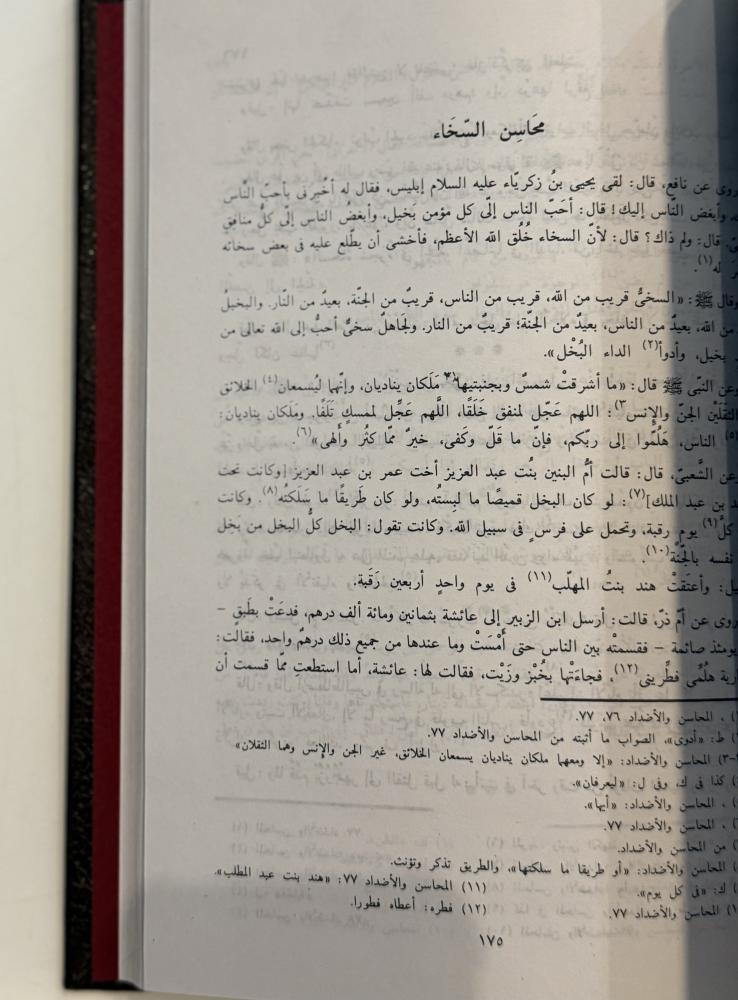 محَاسِن السّخَاء
روى عن نافع، قال: لقى يحيى بنُ زكريّاء عليه السلام إبليس، فقال له أخْبرنى بأحبّ النّاس
وأبغض النّاس إليك! قال: أحَبّ الناس إلىّ كل مؤمن بَخيل، وأبغضُ الناس إلىّ كلُّ منافق
قال: ولم ذاك؟ قال: لأنّ السخاء خُلُق الله الأعظم، فأخشى أن يطّلع عليه فى بعض سخائه
له(١).
وقال ﷺ: «السخىُّ قريب من الله، قريب من الناس، قريبٌ من الجنّة، بعيدٌ من النّار. والبخيلُ
من الله، بعيدٌ من الناس، بعيدٌ من الجنّة؛ قريبٌ من النار. ولَجاهلٌ سخىٌّ أحبُّ إلى الله تعالى من
بخيل، وأدوأ(٢) الداء البُخْل».
وعن النّبى ﷺ قال: «ما أشرقتْ شمسٌ وبجنبتيها(٣ مَلَكان يناديان، وإنّهما ليُسمعان(٤) الخلائق
الثّقَلَيْن الجنّ والإنس٣): اللهم عَجّل لمنفق خَلَفًا، اللّهم عَجِّل لممسكٍ تَلَفًا. ومَلَكان يناديان:
(٥) الناس، هَلُمّوا إلى ربّكم، فإنّ ما قَلّ وكَفى، خيرٌ ممّا كثُر وأَلهى»(٦).
وعن الشّعبىّ، قال: قالت أمُّ البنين بنْت عبد العزيز أخت عمر بن عبد العزيز [وكانت تحت
بن عبد الملك](٧): لو كان البخل قميصًا ما لبِستُه، ولو كان طَريقًا ما سَلَكتُه(٨). وكانت
كلّ(٩) يوم رقبة، وتحمل على فرسٍ فى سبيل الله. وكانت تقول: البخل كلُّ البخل من بَخِل
نفسه بالجَنّة(١٠).
وأعتَقتْ هند بنتُ المهلّب(١١) فى يوم واحدٍ أربعين رَقَبة.
وروى عن أمّ ذرّ، قالت: أرسل ابن الزبير إلى عائشة بثمانين ومائة ألف درهم، فدعَتْ بطَبقٍ –
يومئذ صائمة – فقسمتْه بين الناس حتى أَمْسَتْ وما عندها من جميع ذلك درهمٌ واحد، فقالت:
هلُمِّى فطِّرينى(١٢)، فجاءَتْها بخُبْز وزَيْت، فقالت لها: عائشة، أما استطعتِ ممّا قسمت أن
، المحاسن والأضداد ٧٦، ٧٧.
ط: «أدوى»، الصواب ما أثبته من المحاسن والأضداد ٧٧.
٣) المحاسن والأضداد: «إلا ومعهما ملكان يناديان يسمعان الخلائق، غير الجن والإنس وهما الثقلان»
كذا فى ك، وفى ل: «ليعرفان».
، المحاسن والأضداد: «أيها».
، المحاسن والأضداد ٧٧.
من المحاسن والأضداد.
المحاسن والأضداد: «أو طريقا ما سلكتها»، والطريق تذكر وتؤنث.
ك: «فى كل يوم». (١١) المحاسن والأضداد ٧٧: «هند بنت عبد المطلب».
المحاسن والأضداد ٧٧. (١٢) فطره: أعطاه فطورا.
١٧٥